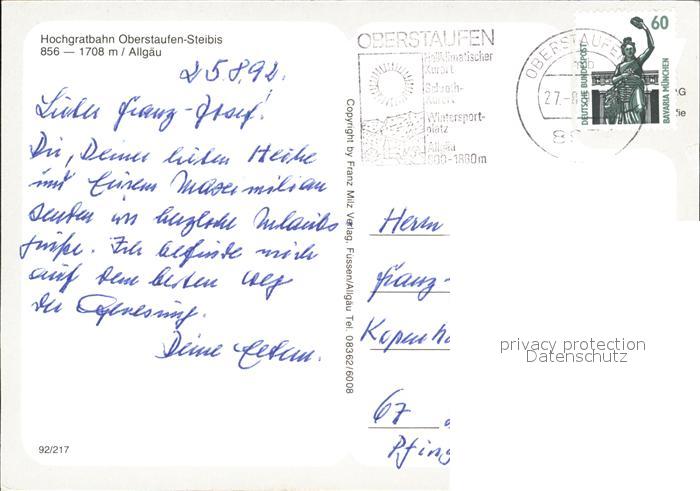 Hochgratbahn Oberstaufen-Steibis
856 — 1708 m / Allgäu
25.8.92.
Lieber Franz-Josef!
Dir, Deiner lieben Heike
und Eurem Maximilian
senden wir herzliche Urlaubs
grüße. Ich befinde mich
auf dem besten Weg
der Genesung.
Deine Eltern.
92/217
Copyright by Franz Milz Verlag, Füssen/Allgäu Tel. 08362/6008
OBERSTAUFEN
Heilklimatischer
Kurort
Schroth-
Kurort
Wintersport-
platz
Allgäu
800-1860m
OBERSTAUFEN
mb
27.
60
DEUTSCHE BUNDESPOST
BAVARIA MÜNCHEN
G
ie
Herrn
Franz-
Kopenh
67
Pfing
privacy protection
Datenschutz